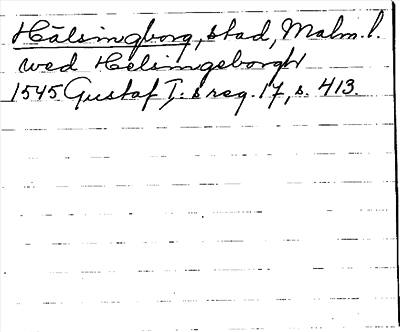 Hälsingborg, stad, Malm. l.
wed Helsingeborgh
1545 Gustaf I:s reg. 17, s. 413.